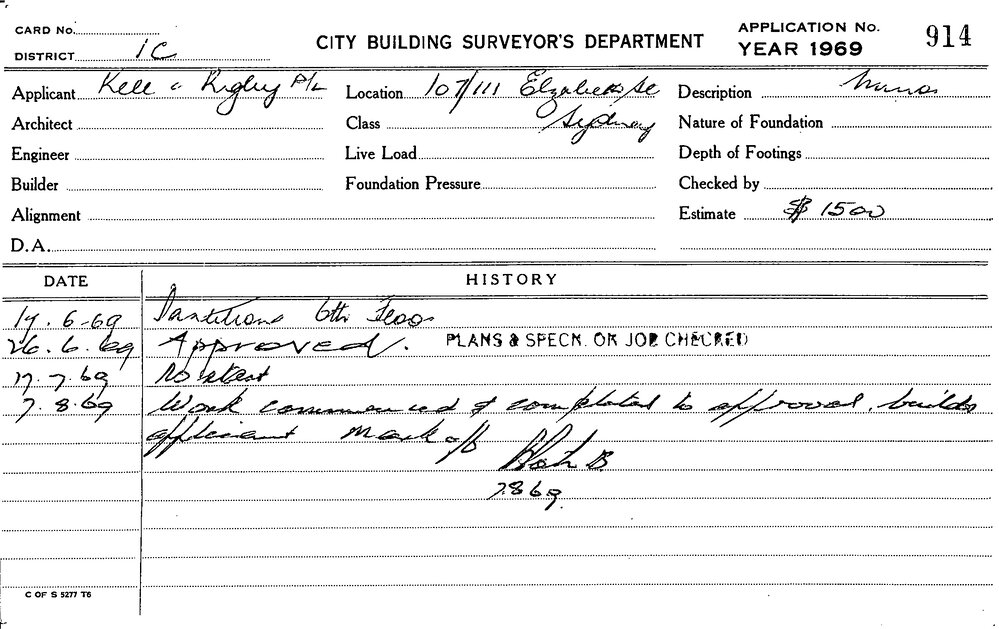 CARD No.
DISTRICT 1C
CITY BUILDING SURVEYOR'S DEPARTMENT
APPLICATION No. 914
YEAR 1969
Applicant Kell & Rigby P/L Location 107/111 Elizabeth St Description
Architect Class Sydney Nature of Foundation
Engineer Live Load Depth of Footings
Builder Foundation Pressure Checked by
Alignment Estimate $1500
D.A.
DATE HISTORY
17.6.69 Partitions 6th Floor
26.6.69 Approved. PLANS & SPECN. OR JOB CHECKED
17.7.69 No start
7.8.69 Work commenced & completed to approval, builder
applicant Mark off
7.8.69
C OF S 5277 T6